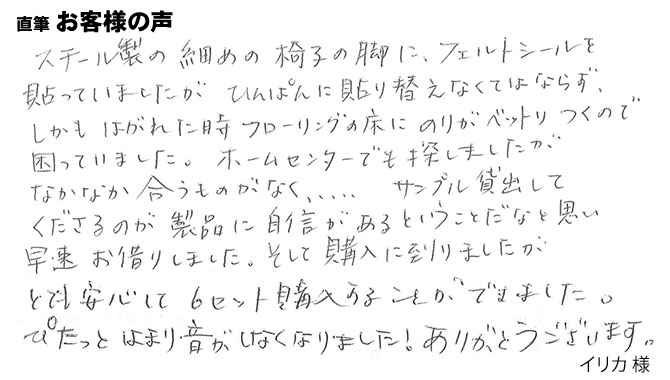 直筆 お客様の声
スチール製の細めの椅子の脚に、フェルトシールを
貼っていましたが ひんぱんに貼り替えなくてはならず、
しかも はがれた時 フローリングの床に のりがベットリ つくので
困っていました。ホームセンターでも探しましたが
なかなか合うものがなく、.... サンプル貸出して
くださるのが製品に自信があるということだなと思い
早速お借りしました。そして購入に到りましたが
とても安心して 6セット購入することができました。
ぴたっとはまり音がしなくなりました!ありがとうございます。
イリカ 様